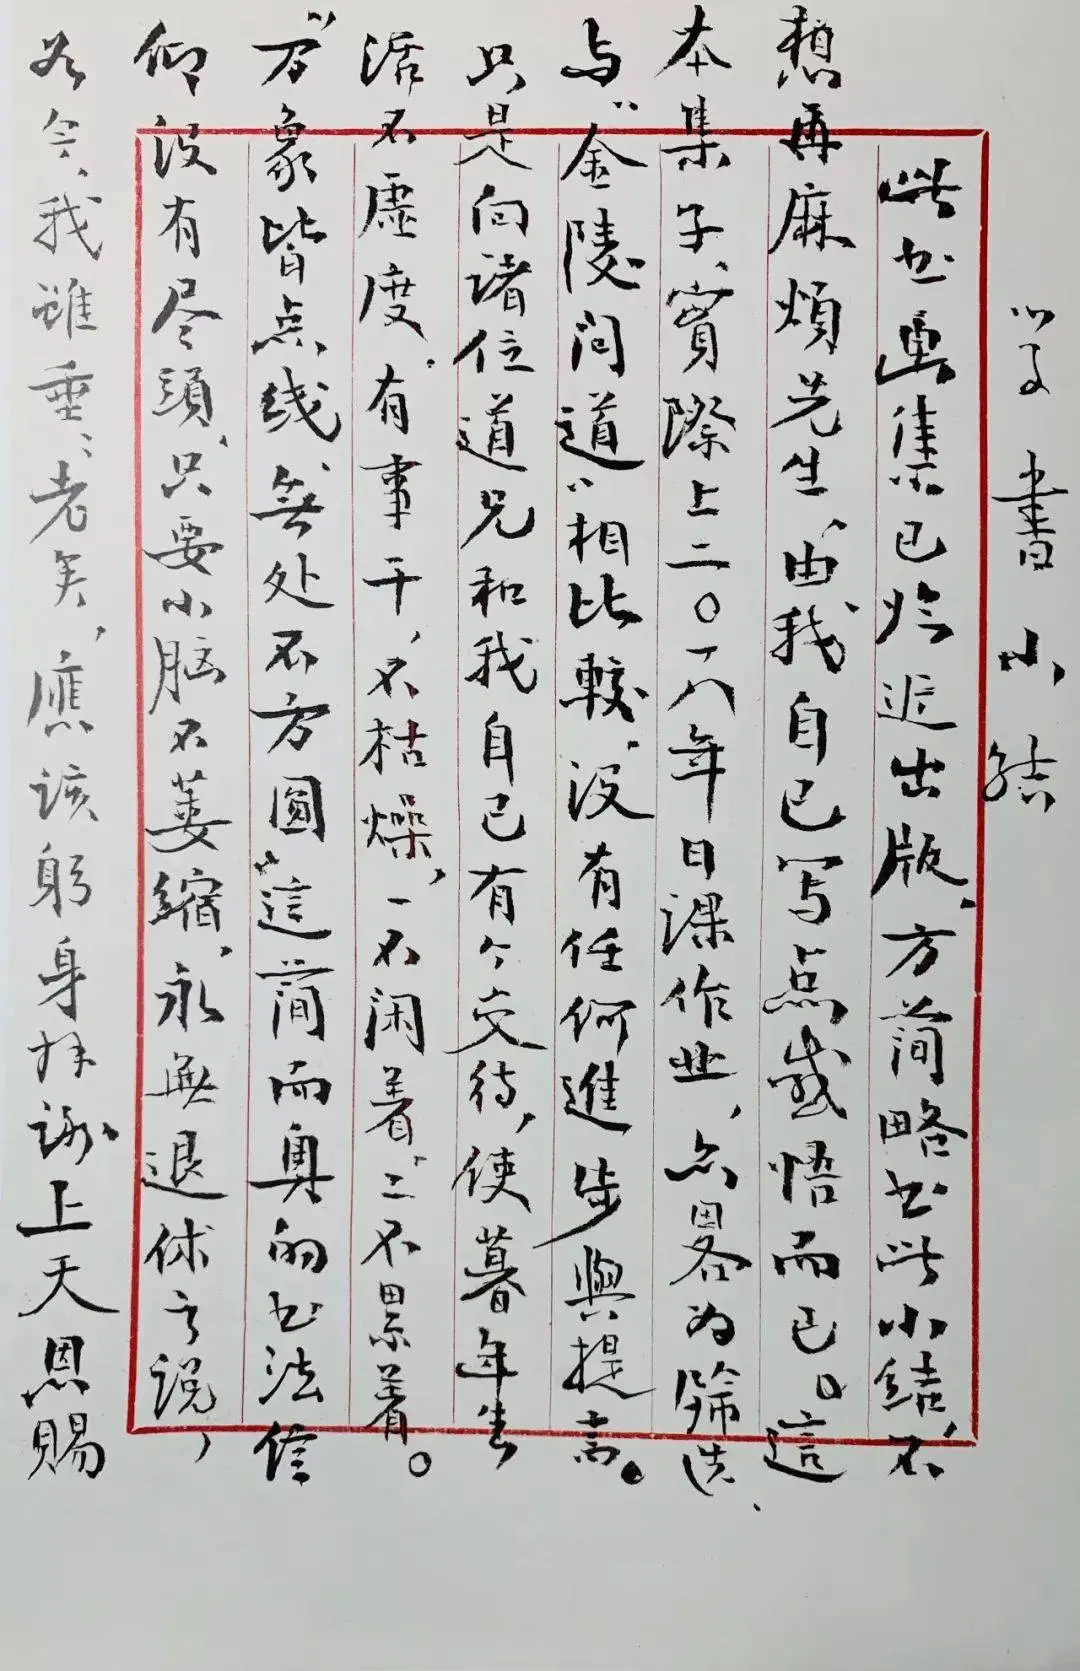 学書小结
此书畫集已临近出版、方简略书此小结、不
想再麻煩先生、由我自已写点感悟而已。這
本集子、實際上二〇一八年日课作业，亦畧为篩选、
与“金陵问道”相比較、没有任何進步與提高。
只是向諸位道兄和我自己有个交待，使暮年生
活不虚度、有事干，不枯燥，一不闲着、二不累着。
“万象皆点线、無处不方圆”這简而奥的书法信
仰没有尽頭、只要小脑不萎缩，永無退休之说，
如今、我雖垂垂老矣，應该躬身拜谢上天恩赐